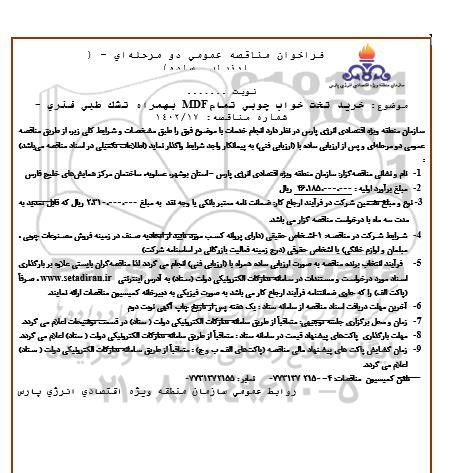 فراخوان مناقصه عمومي دو مرحله‌اي - (
ارزیابی ساده)
نوبت .......
سازمان منطقه ویژه اقتصادی انرژی پارس
موضوع: خرید تخت خواب چوبی تمام MDF بهمراه تشك طبی فنری -
شماره مناقصه: ۱۴۰۲/۱۷
سازمان منطقه ویژه اقتصادی انرژی پارس در نظر دارد انجام خدمات با موضوع فوق را طبق مشخصات و شرایط کلی زیر، از طریق مناقصه
عمومی دو مرحله‌ای و پس از ارزیابی ساده با (ارزیابی فنی) به پیمانکار واجد شرایط واگذار نماید (اطلاعات تکمیلی در اسناد مناقصه می‌باشد)
:
1- نام و نشانی مناقصه‌گزار: سازمان منطقه ویژه اقتصادی انرژی پارس – استان بوشهر، عسلویه، ساختمان مرکز همایش‌های خلیج فارس
2- مبلغ برآورد اولیه: ۴۶.۱۸۵.۰۰۰.۰۰۰ ریال
3- نوع و مبلغ تضمین شرکت در فرآیند ارجاع کار: ضمانت نامه معتبر بانکی یا وجه نقد به مبلغ ۲.۳۱۰.۰۰۰.۰۰۰ ریال که قابل تمدید به
مدت سه ماه با درخواست مناقصه گزار می باشد.
4- شرایط شرکت در مناقصه: ۱-اشخاص حقیقی (دارای پروانه کسب مورد تایید از اتحادیه صنف در زمینه فروش مصنوعات چوبی ،
مبلمان و لوازم خانگی) یا اشخاص حقوقی (درج زمینه فعالیت بازرگانی در اساسنامه شرکت)
5- فرآیند انتخاب برنده مناقصه به صورت ارزیابی ساده همراه با (ارزیابی فنی) انجام می گردد لذا مناقصه‌گران بایستی علاوه بر بارگذاری
اسناد مورد درخواست و مستندات در سامانه تدارکات الکترونیکی دولت (ستاد) به آدرس اینترنتی www.setadiran.ir ، صرفاً
(پاکت الف) را که حاوی ضمانتنامه فرآیند ارجاع کار می باشد به صورت فیزیکی به دبیرخانه کمیسیون مناقصات ارائه نمایند.
6- آخرین مهلت دریافت اسناد مناقصه از سامانه ستاد : یک هفته پس از تاریخ چاپ آگهی نوبت دوم
7- زمان و محل برگزاری جلسه توجیهی: متعاقباً از طریق سامانه تدارکات الکترونیکی دولت ( ستاد) در قسمت توضیحات اعلام می گردد.
8- مهلت بارگذاری پاکت‌های پیشنهاد قیمت در سامانه ستاد : متعاقباً از طریق سامانه تدارکات الکترونیکی دولت ( ستاد) اعلام می گردد.
9- زمان گشایش پاکت های پیشنهاد مالی مناقصه (پاکت‌های الف، ب و ج) : متعاقباً از طریق سامانه تدارکات الکترونیکی دولت ( ستاد)
اعلام می گردد.
تلفن کمیسیون مناقصات: ۴- ۰۷۷۳۱۳۷۲۱۵۰ نمابر: ۰۷۷۳۱۳۷۲۱۵۵
روابط عمومی سازمان منطقه ویژه اقتصادی انرژی پارس